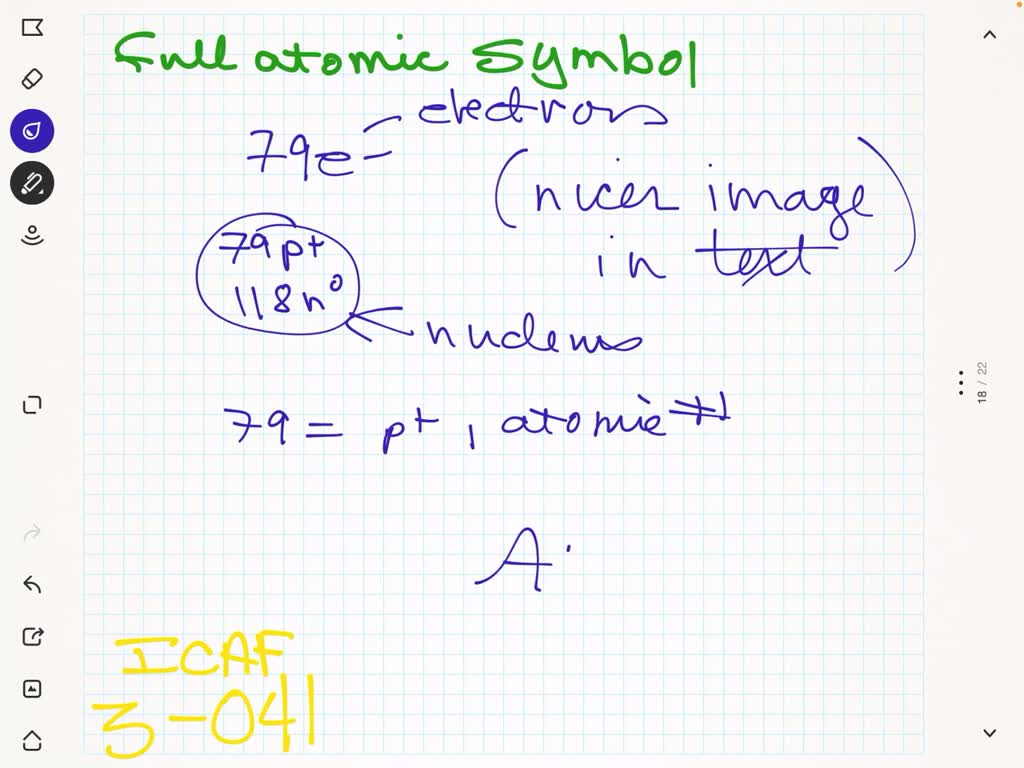 Full atomic Symbol
79e- electrons
(nicer image
in text)
79p+
118n⁰
nucleus
79 = p+, atomic #
A
ICAF
3-041
18 / 22